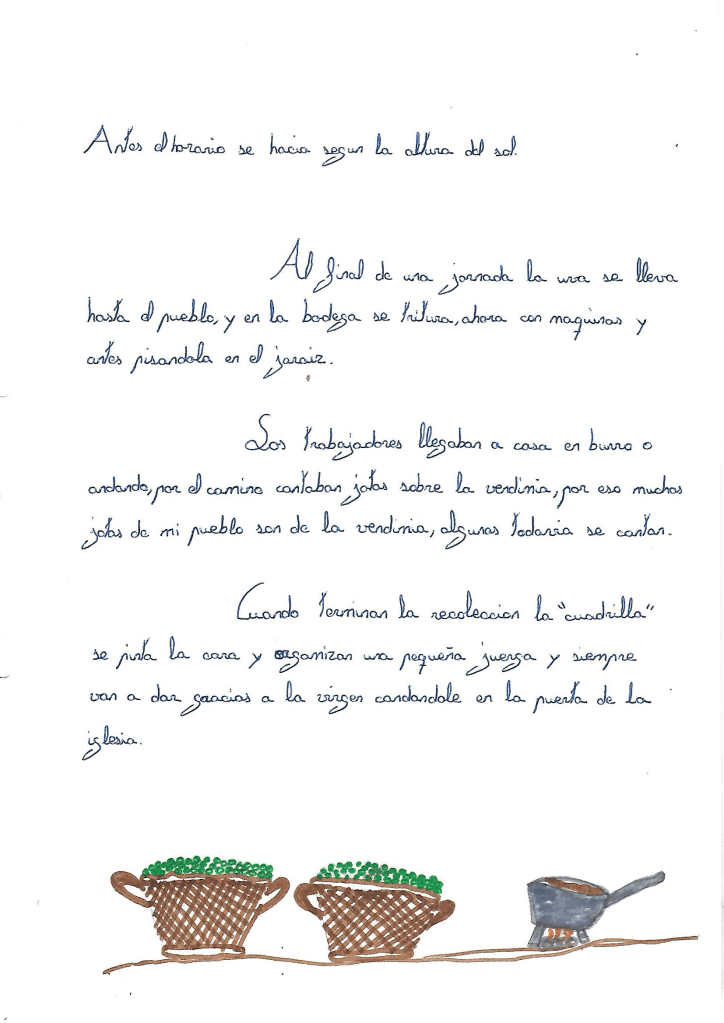 Antes el horario se hacia segun la altura del sol.
Al final de una jornada la uva se lleva
hasta el pueblo, y en la bodega se tritura, ahora con maquinas y
antes pisandola en el jaraiz.
Los trabajadores llegaban a casa en burro o
andando, por el camino cantaban jotas sobre la vendimia, por eso muchas
jotas de mi pueblo son de la vendimia, algunas todavia se cantan.
Cuando terminan la recoleccion la "cuadrilla"
se pinta la cara y organizan una pequeña juerga y siempre
van a dar gracias a la virgen candandole en la puerta de la
iglesia.